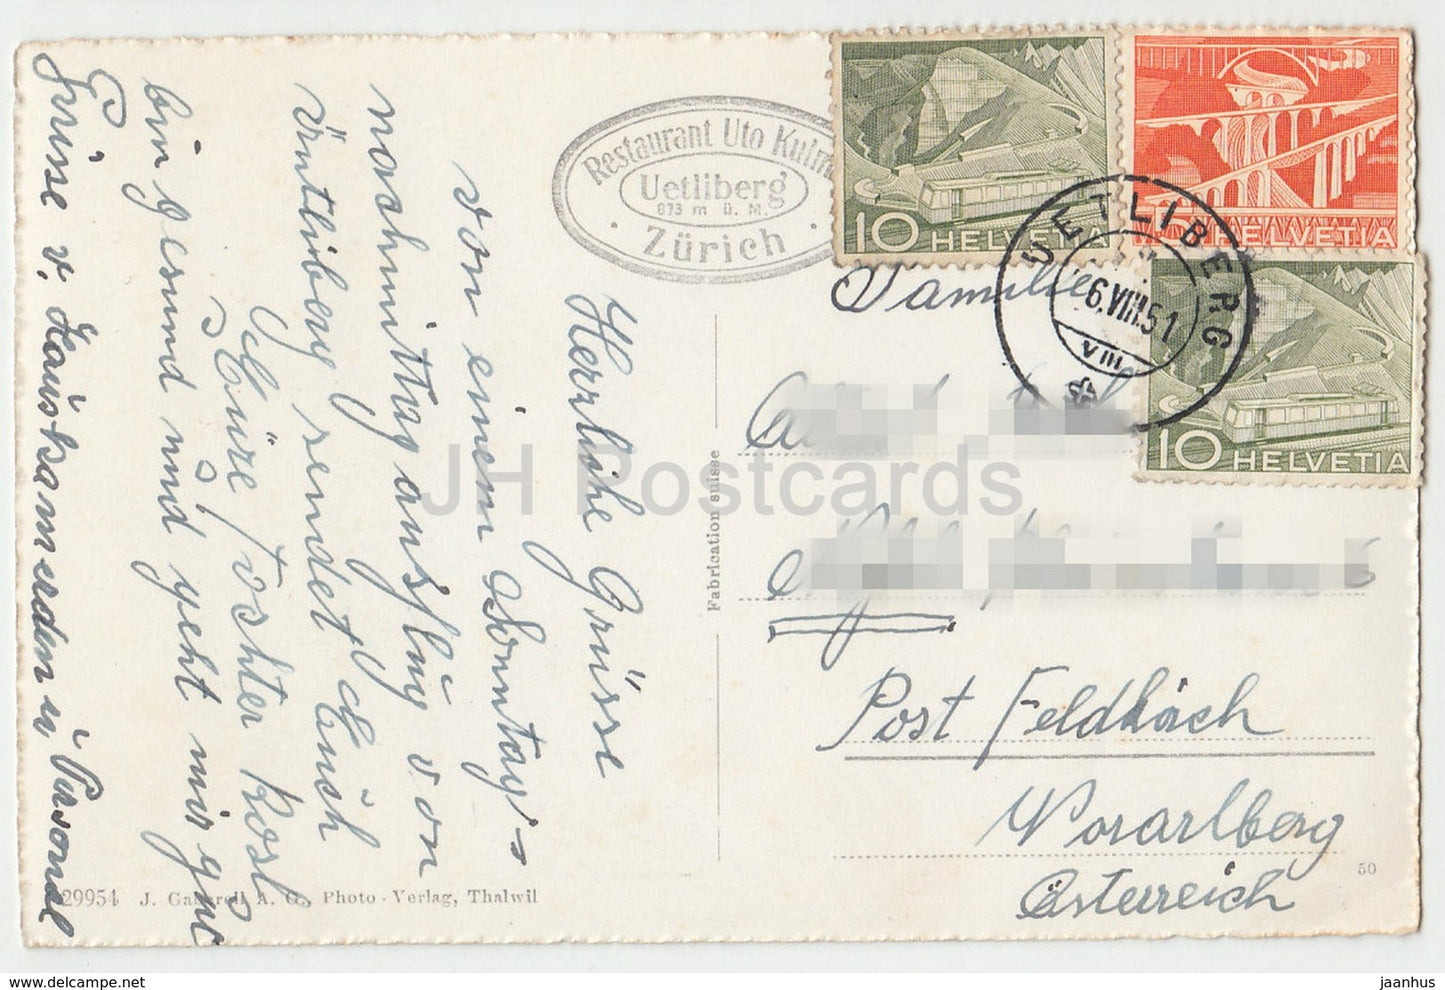 Herrliche Grüsse
von einem Sonntag's-
nachmittag ausflug von
Üntliberg sendet Euch
Eure Tochter Rosl
bin gesund und geht mir gut
Grüsse v. Hauskameraden u Personal
Restaurant Uto Kulm
Uetliberg
873 m ü. M.
· Zürich ·
10 HELVETIA
5 HELVETIA
10 HELVETIA
UETLIBERG
6.VIII.51
VIII
Familie
Post Feldkirch
Vorarlberg
Österreich
Fabrication suisse
50
29954 J. Gaberell A. G., Photo - Verlag, Thalwil
JH Postcards
jaanhus www.delcampe.net